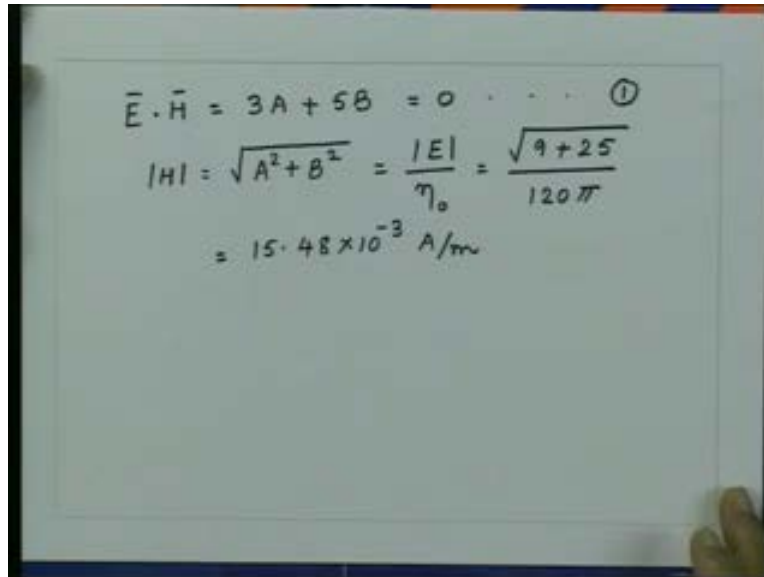 Ē . H̄ = 3A + 5B = 0 . . . ①
|H| = √(A² + B²) = |E| / η₀ = √(9 + 25) / 120π
= 15.48 × 10⁻³ A/m